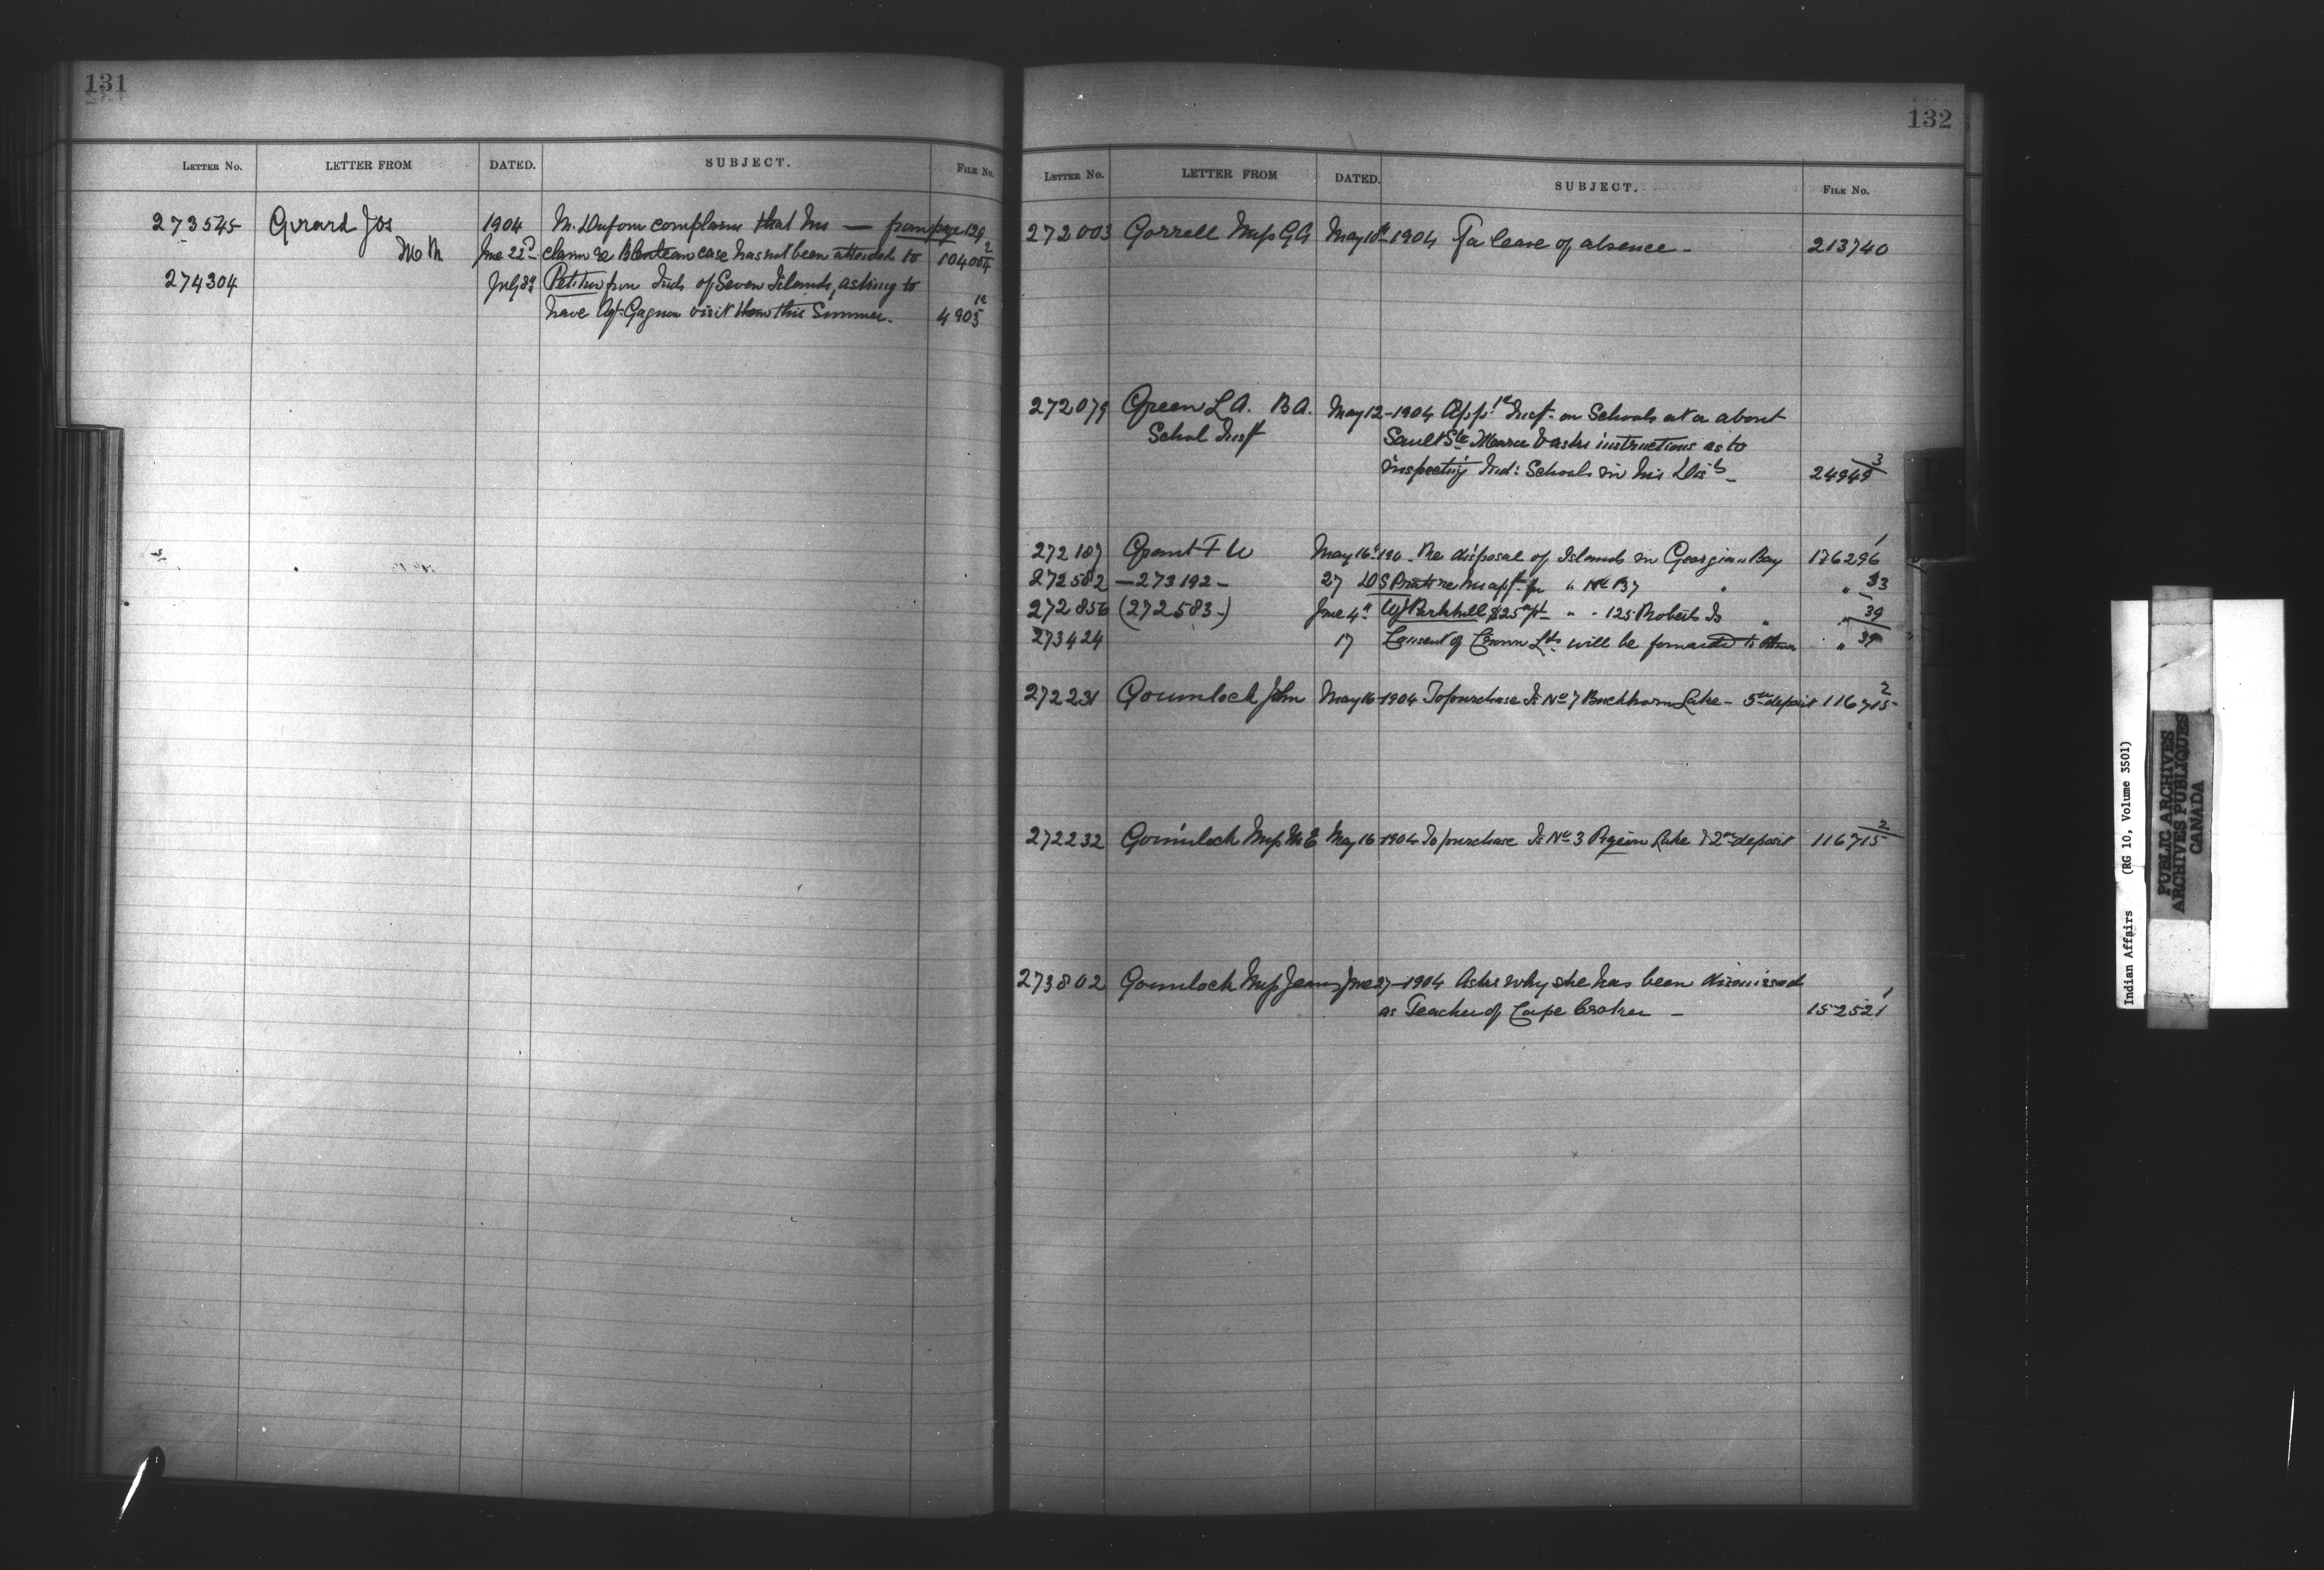 131
LETTER NO. LETTER FROM DATED. SUBJECT. FILE NO.
273545 Girard Jos 1904 M. Dufour complains that his — from page 129
M.M. June 22d claim re case has not been attended to 104004 2
274304 July 8th Petition from Inds of Seven Islands, asking to
have Agt. Gagnon visit them this Summer. 4905 1a
132
LETTER NO. LETTER FROM DATED. SUBJECT. FILE NO.
272003 Gorrell Miss GA May 10th 1904 For leave of absence - 213740
272079 Green L A. B A. May 12 - 1904 App. as Insp. on Schools at or about
School Insp Sault Ste Marie & asks instructions as to
inspecting Ind: Schools in his Dist - 24949 3
272187 Grant F W May 16 190 - Re disposal of Islands in Georgian Bay 176296 1
272582 — 273192 - 27 for " No B37 " " 33
272856 (272583-) June 4th W J Parkhill $25 " - 125 Roberts Is " " 39
273424 17 Consent of Crown Lds will be forwarded to " 39
272231 Goumlock John May 16 - 1904 To purchase Is No 7 Buckhorn Lake - 5 deposit 116715 2
272232 Goumlock Miss M E May 16 - 1904 To purchase Is No 3 Pigeon Lake & 2 deposit 116715 2
273802 Goumlock Miss June 27 - 1904 Asks why she has been dismissed
as Teacher of Cape Croker - 152521 1
Indian Affairs (RG 10, Volume 3501)
PUBLIC ARCHIVES
ARCHIVES PUBLIQUES
CANADA